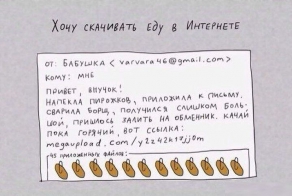 Хочу скачивать еду в Интернете
от: Бабушка <varvara46@gmail.com>
Кому: мне
Привет, внучок!
Напекла пирожков, приложила к письму.
Сварила борщ, получился слишком боль-
шой, пришлось залить на обменник. Качай
пока горячий, вот ссылка:
megaupload.com/
приложенных файлов: